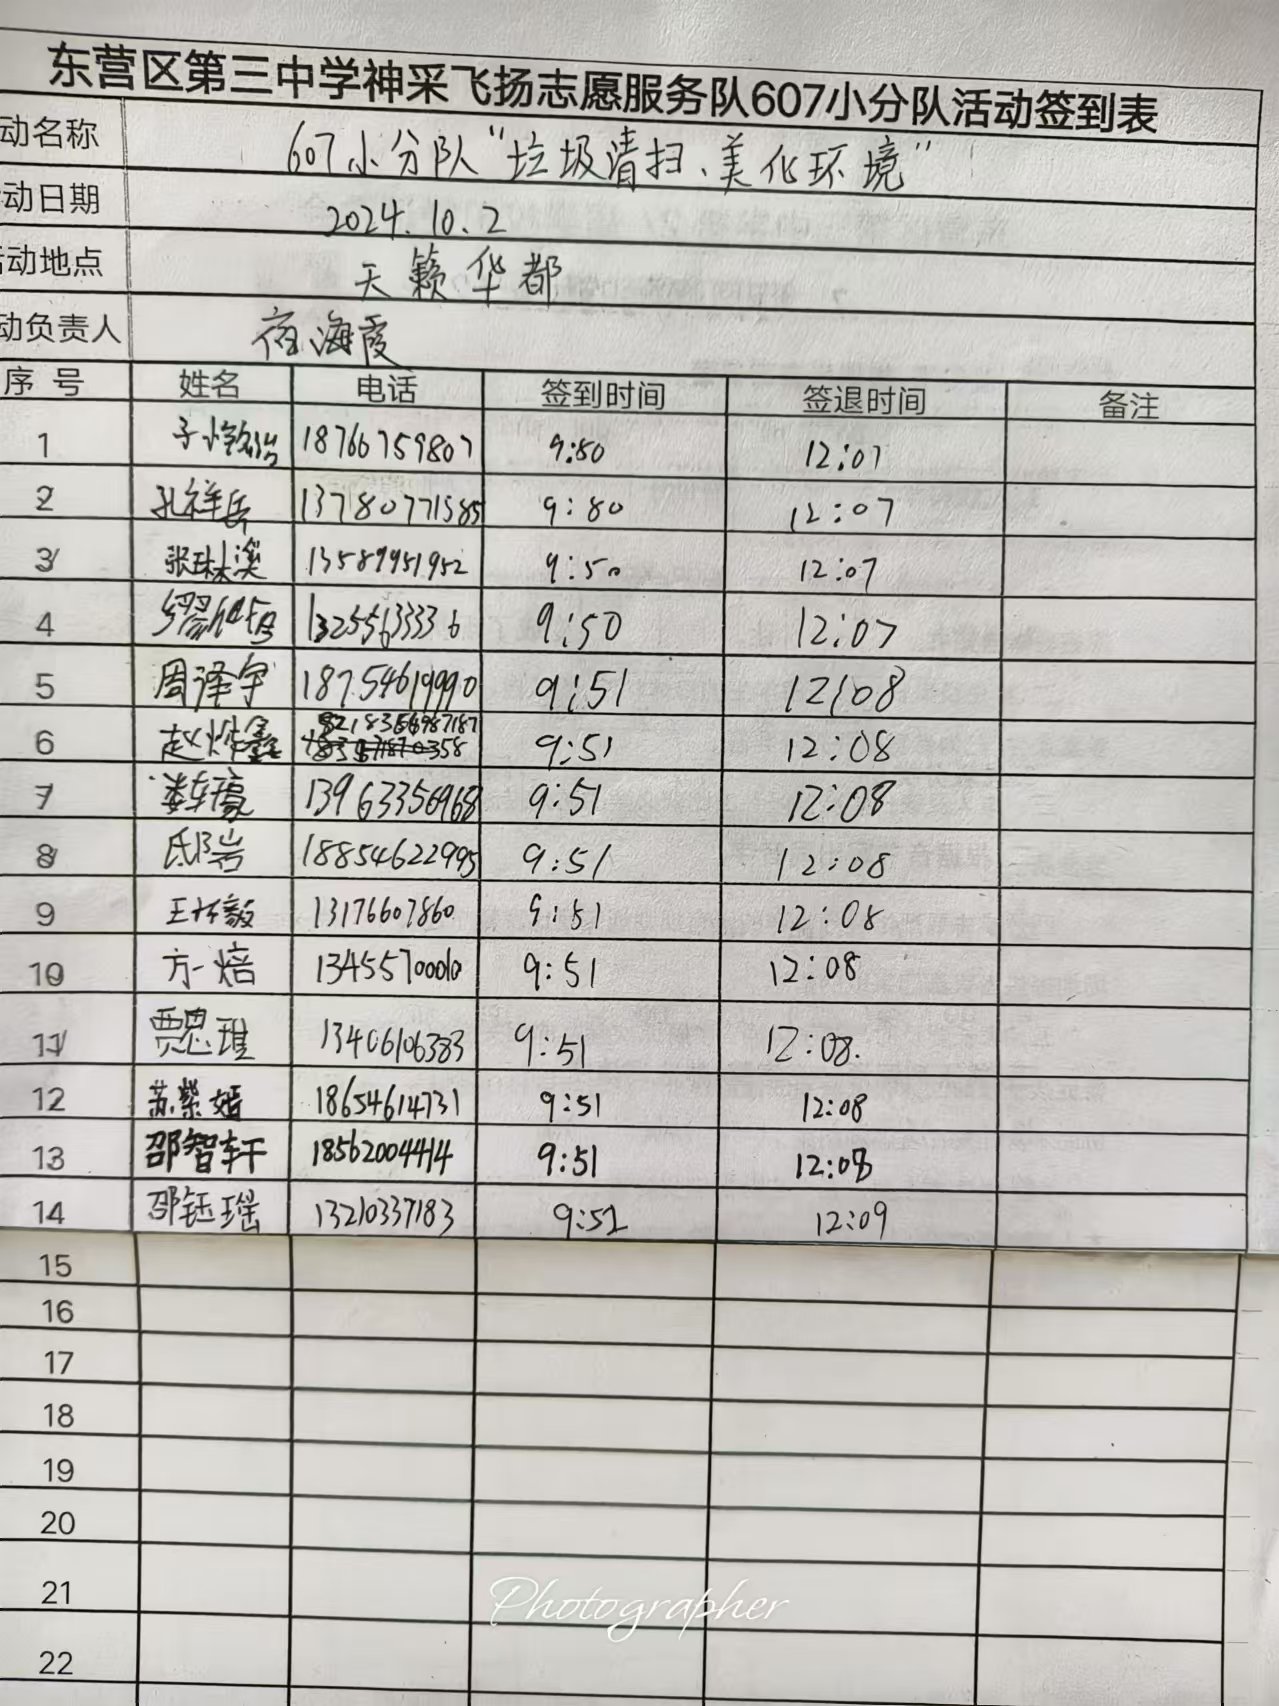 东营区第三中学神采飞扬志愿服务队607小分队活动签到表
动名称 607小分队“垃圾清扫、美化环境”
动日期 2024.10.2
活动地点 天籁华都
动负责人 海霞
序号 姓名 电话 签到时间 签退时间 备注
1 18766759807 9:50 12:07
2 孔祥岳 13780771585 9:80 12:07
3 张琳溪 13589951952 9:50 12:07
4 13255633336 9:50 12:07
5 周泽宇 18754619990 9:51 12:08
6 赵烨鑫 9:51 12:08
7 娄轩豪 13963356968 9:51 12:08
8 18854622995 9:51 12:08
9 13176607860 9:51 12:08
10 方一焙 13455700010 9:51 12:08
11 贾思琪 13406106383 9:51 12:08.
12 苏紫嫣 18654614731 9:51 12:08
13 邵智轩 18562004414 9:51 12:08
14 邵钰瑶 13210337183 9:52 12:09
15
16
17
18
19
20
21
22
Photographer